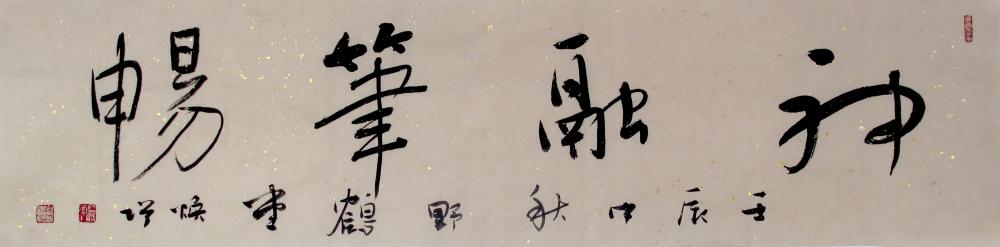 神融筆暢
壬辰中秋野鶴堂煥增